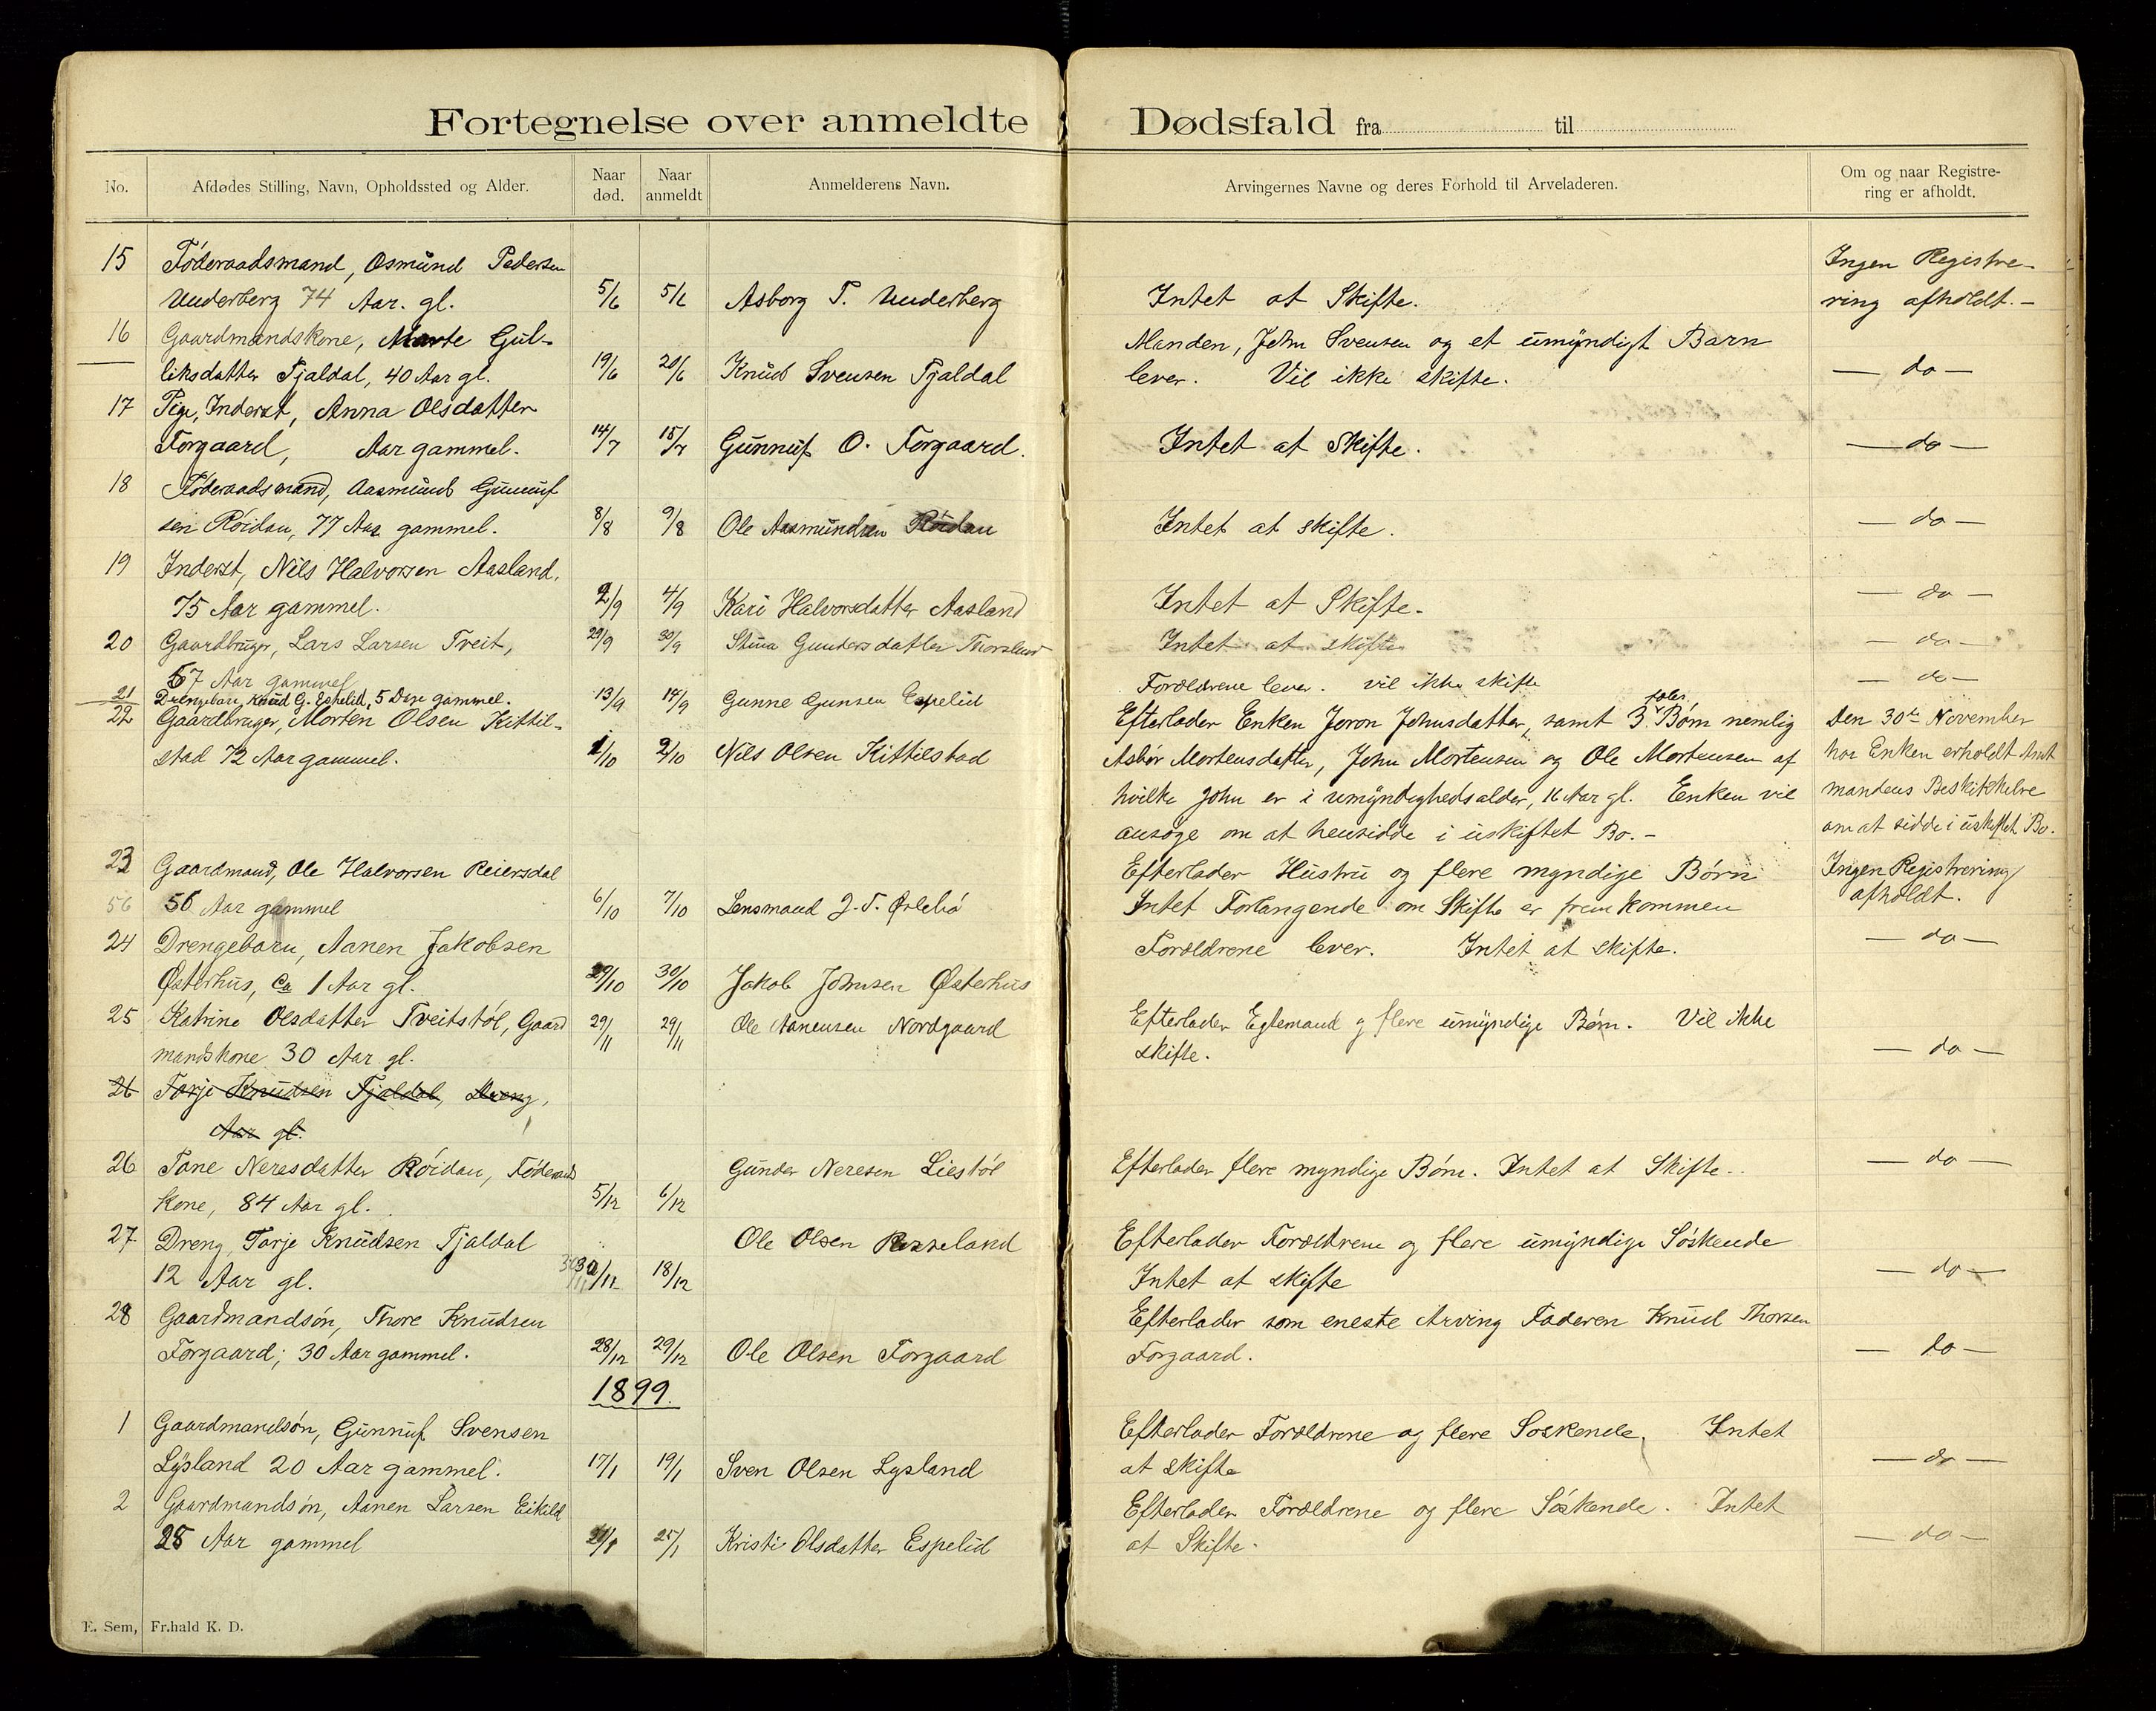 Fortegnelse over anmeldte Dødsfald fra til
No. Afdødes Stilling, Navn, Opholdssted og Alder. Naar død. Naar anmeldt Anmelderens Navn. Arvingernes Navne og deres Forhold til Arveladeren. Om og naar Registrering er afholdt.
15 Föderaadsmand, Osmund Pedersen Ingen Registre-
Underberg 74 Aar. gl. 5/6 5/6 Asborg T. Underberg Intet at Skifte. ring afholdt.-
16 Gaardmandskone, Marte Gul- Manden, John Svensen og et umyndigt Barn
liksdatter Fjaldal, 40 Aar gl. 19/6 20/6 Knud Svensen Fjaldal lever. Vil ikke skifte. — do —
17 Pige, Inderst, Anna Olsdatter
Forgaard, Aar gammel. 14/7 15/7 Gunnuf O. Forgaard. Intet at Skifte. — do —
18 Föderaadsmand, Aasmund Gunnuf
sen Röidan, 77 Aar gammel. 8/8 9/8 Ole Aasmundsen Röidan Intet at skifte. — do —
19 Inderst, Nils Halvorsen Aasland,
75 Aar gammel. 2/9 4/9 Kari Halvorsdatter Aasland Intet at Skifte. — do —
20 Gaardbruger, Lars Larsen Tveit, 29/9 30/9 Stina Gundersdatter Intet at skifte — do —
67 Aar gammel
21 Drengebarn, Knud G. Espelid, 5 Dage gammel. 13/9 14/9 Gunne Gunsen Espelid Forældrene lever. vil ikke skifte — do —
22 Gaardbruger, Morten Olsen Kittil- Efterlader Enken Joron Johnsdatter, samt 3 Börn nemlig Den 30te November
stad 72 Aar gammel. 1/10 2/10 Nils Olsen Kittilstad Asbör Mortensdatter, John Mortensen og Ole Mortensen af har Enken erholdt Amt
hvilke John er i umyndighedsalder, 16 Aar gl. Enken vil mandens
ansöge om at hensidde i uskiftet Bo.- om at sidde i uskiftet Bo.
23 Gaardmand, Ole Halvorsen Reiersdal Efterlader Hustru og flere myndige Börn Ingen Registrering
56 56 Aar gammel 6/10 7/10 Lensmand J. T. Örlebö Intet Forlangende om Skifte er fremkommen afholdt.
24 Drengebarn, Aanen Jakobsen Forældrene lever. Intet at skifte. — do —
Østerhus, ca 1 Aar gl. 29/10 30/10 Jakob Johnsen Østerhus
25 Katrine Olsdatter Tveitstöl, Gaard 29/11 29/11 Ole Aanensen Nordgaard Efterlader Egtemand og flere umyndige Börn. Vil ikke
mandskone 30 Aar gl. skifte. — do —
26 Tarje Knudsen Fjaldal, Dreng,
Aar gl.
26 Tone Neresdatter Röidan, Föderaads Gunder Neresen Liestöl Efterlader flere myndige Börn. Intet at Skifte.. — do —
kone, 84 Aar gl. 5/12 6/12
27 Dreng, Tarje Knudsen Fjaldal Ole Olsen Rosseland Efterlader Forældrene og flere umyndige Söskende
12 Aar gl. 30/11 18/12 Intet at skifte — do —
28 Gaardmandsön, Thore Knudsen Efterlader som eneste Arving Faderen Knud Thorsen
Forgaard; 30 Aar gammel. 28/12 29/12 Ole Olsen Forgaard Forgaard. — do —
1899.
1 Gaardmandsön, Gunnuf Svensen Efterlader Forældrene og flere Söskende, Intet
Lysland 20 Aar gammel. 17/1 19/1 Sven Olsen Lysland at skifte — do —
2 Gaardmandsön, Aanen Larsen Eikild Efterlader Forældrene og flere Söskende. Intet
25 Aar gammel 25/1 Kristi Olsdatter Espelid at Skifte. — do —
E. Sem, Fr.hald K. D.